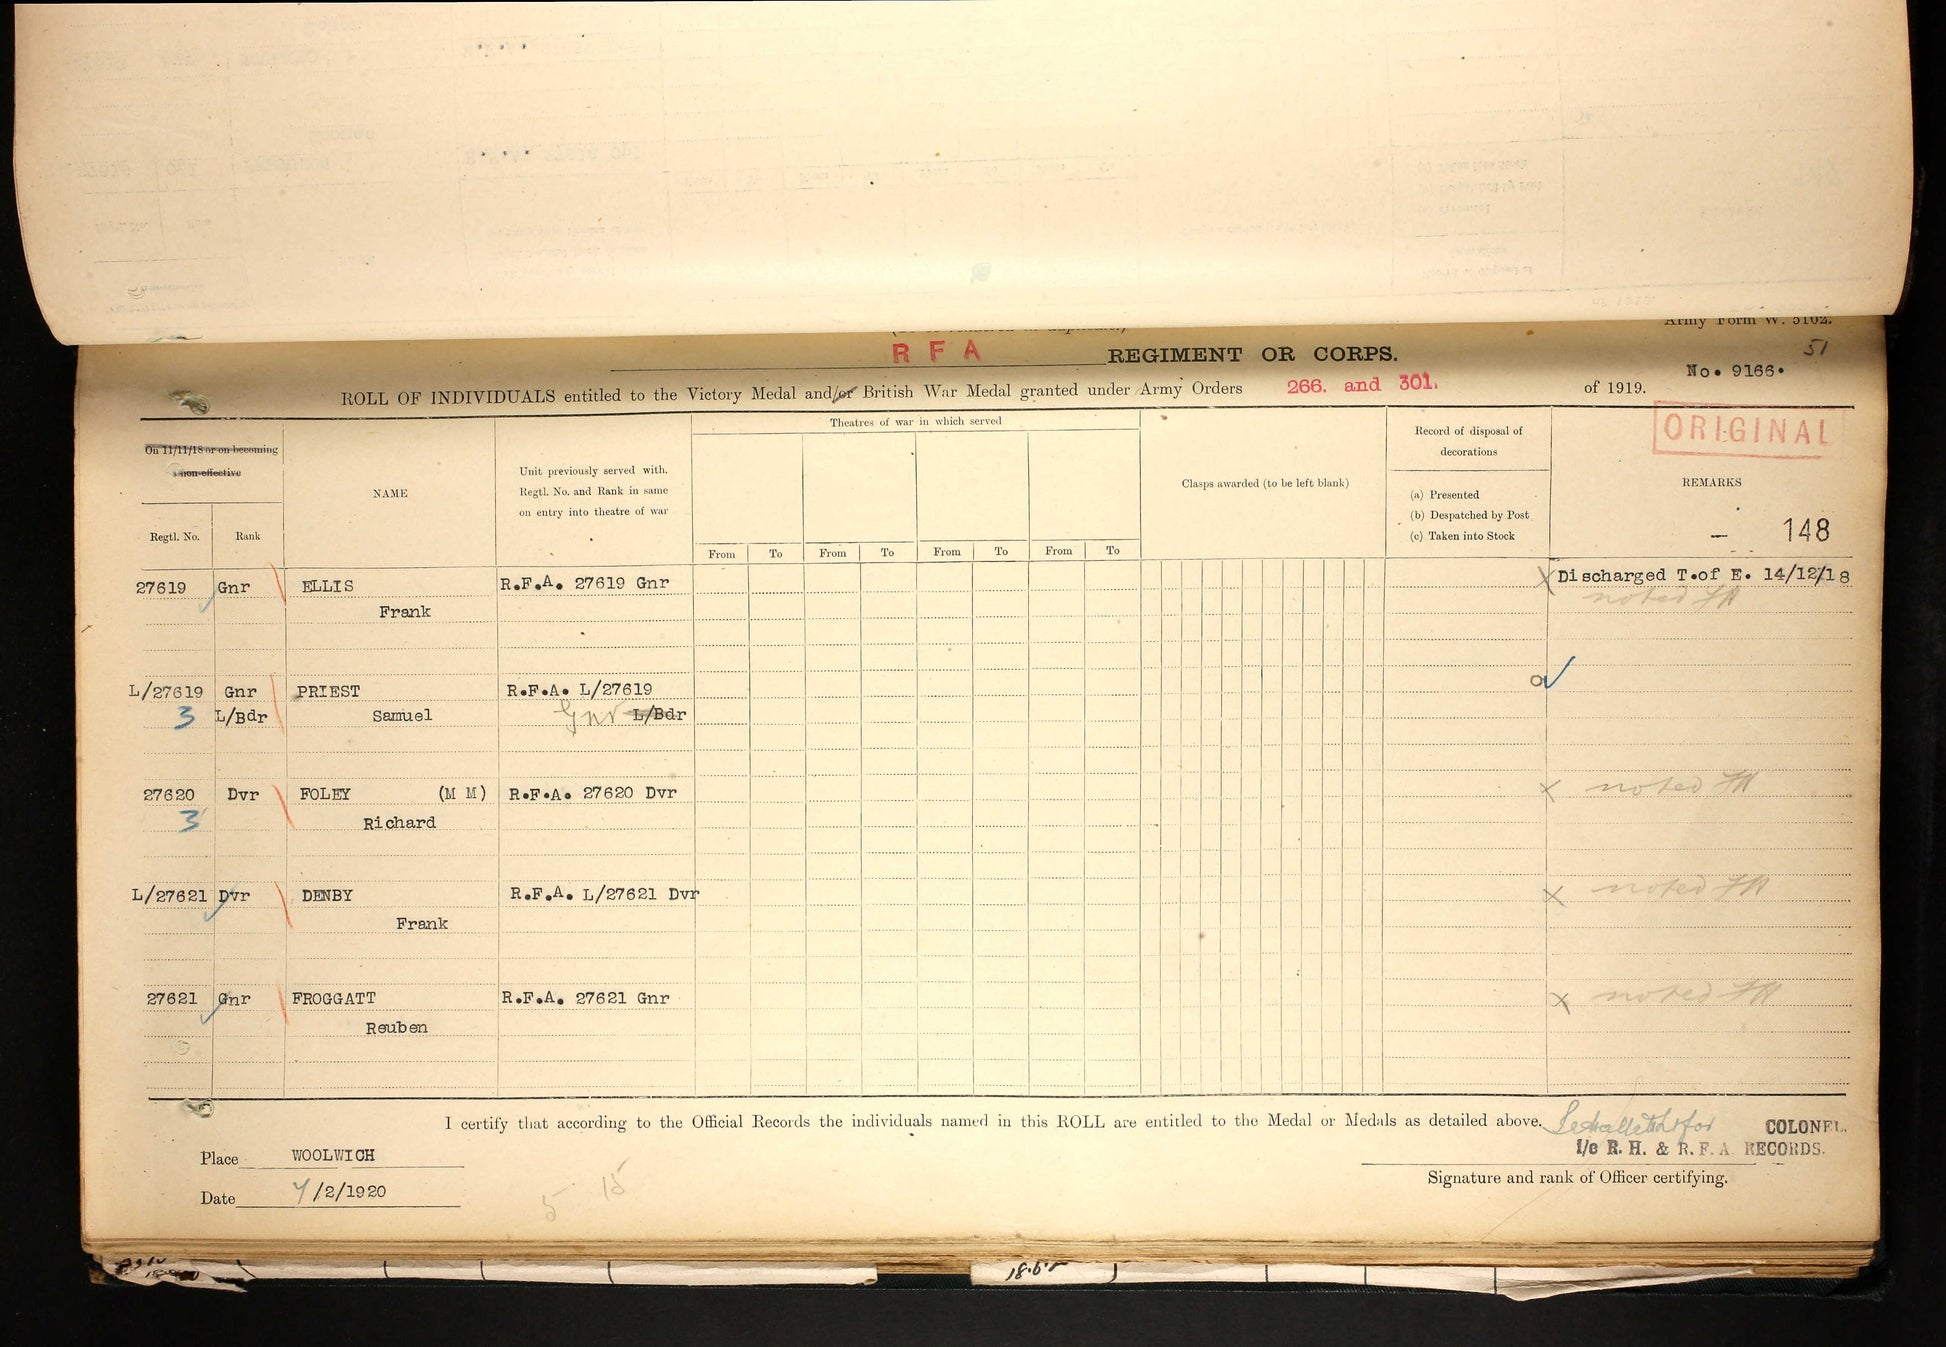 Army Form W. 5102.
51
R F A REGIMENT OR CORPS.
No. 9166.
ROLL OF INDIVIDUALS entitled to the Victory Medal and/or British War Medal granted under Army Orders 266. and 301. of 1919.
ORIGINAL
On 11/11/18 or on becoming
non-effective
Regtl. No.
Rank
NAME
Unit previously served with.
Regtl. No. and Rank in same
on entry into theatre of war
Theatres of war in which served
From To From To From To From To
Clasps awarded (to be left blank)
Record of disposal of
decorations
(a) Presented
(b) Despatched by Post
(c) Taken into Stock
REMARKS
— 148
27619 Gnr ELLIS R.F.A. 27619 Gnr X Discharged T.of E. 14/12/18
Frank noted
L/27619 Gnr PRIEST R.F.A. L/27619
3 L/Bdr Samuel Gnr L/Bdr
27620 Dvr FOLEY (M M) R.F.A. 27620 Dvr X noted
3 Richard
L/27621 Dvr DENBY R.F.A. L/27621 Dvr X noted
Frank
27621 Gnr FROGGATT R.F.A. 27621 Gnr X noted
Reuben
I certify that according to the Official Records the individuals named in this ROLL are entitled to the Medal or Medals as detailed above.
for COLONEL.
I/c R. H. & R. F. A. RECORDS.
Place WOOLWICH
Signature and rank of Officer certifying.
Date 7/2/1920
5 15